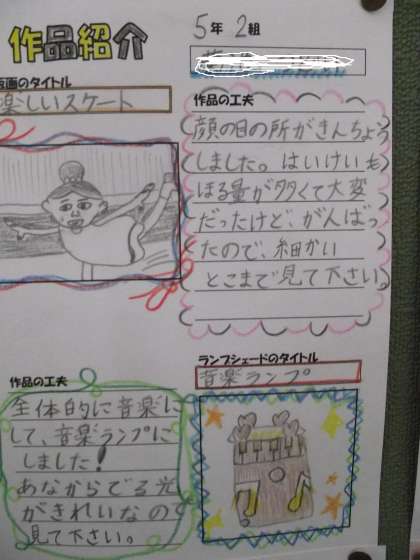 作品紹介
5年 2組
版画のタイトル
楽しいスケート
作品の工夫
顔の目の所がきんちょう
しました。はいけいも
ほる量が多くて大変
だったけど、がんばっ
たので、細かい
とこまで見て下さい
ランプシェードのタイトル
音楽ランプ
作品の工夫
全体的に音楽に
して、音楽ランプに
しました!
あなからでる光
がきれいなの
見て下さい。